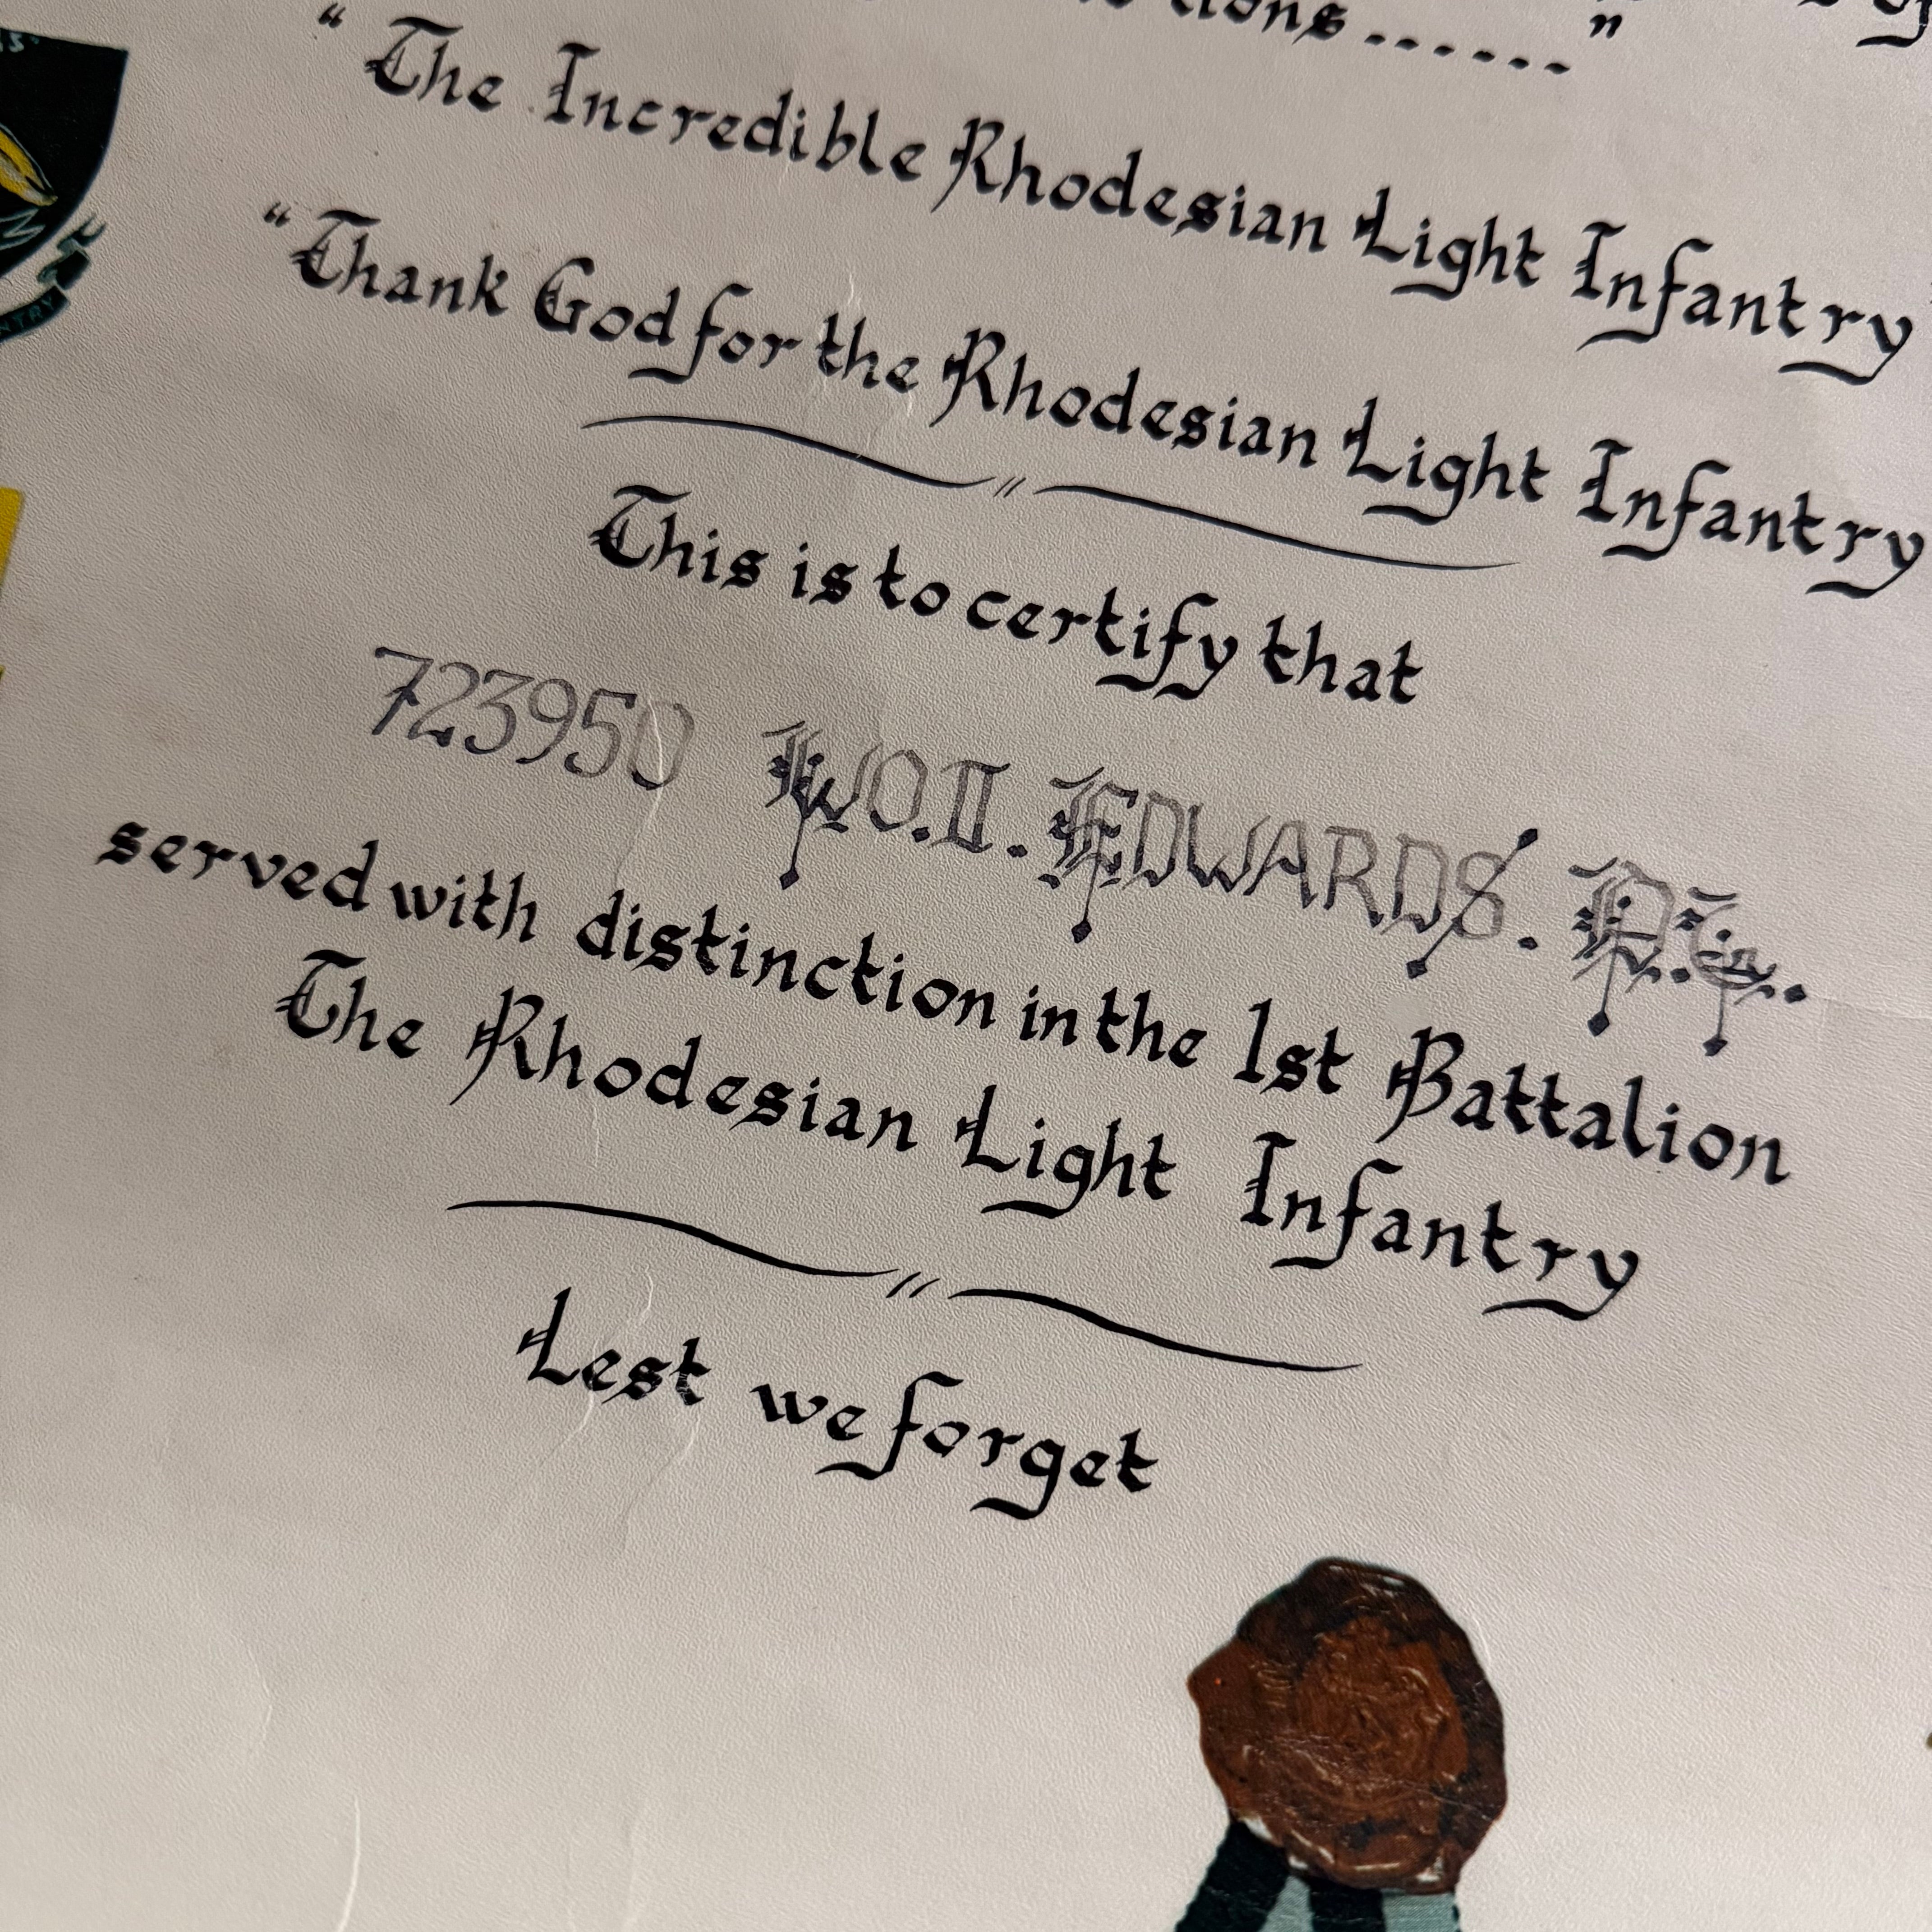 tions ......"
"The Incredible Rhodesian Light Infantry
"Thank God for the Rhodesian Light Infantry
This is to certify that
723950 WO.II. EDWARDS.
served with distinction in the 1st Battalion
The Rhodesian Light Infantry
Lest we forget